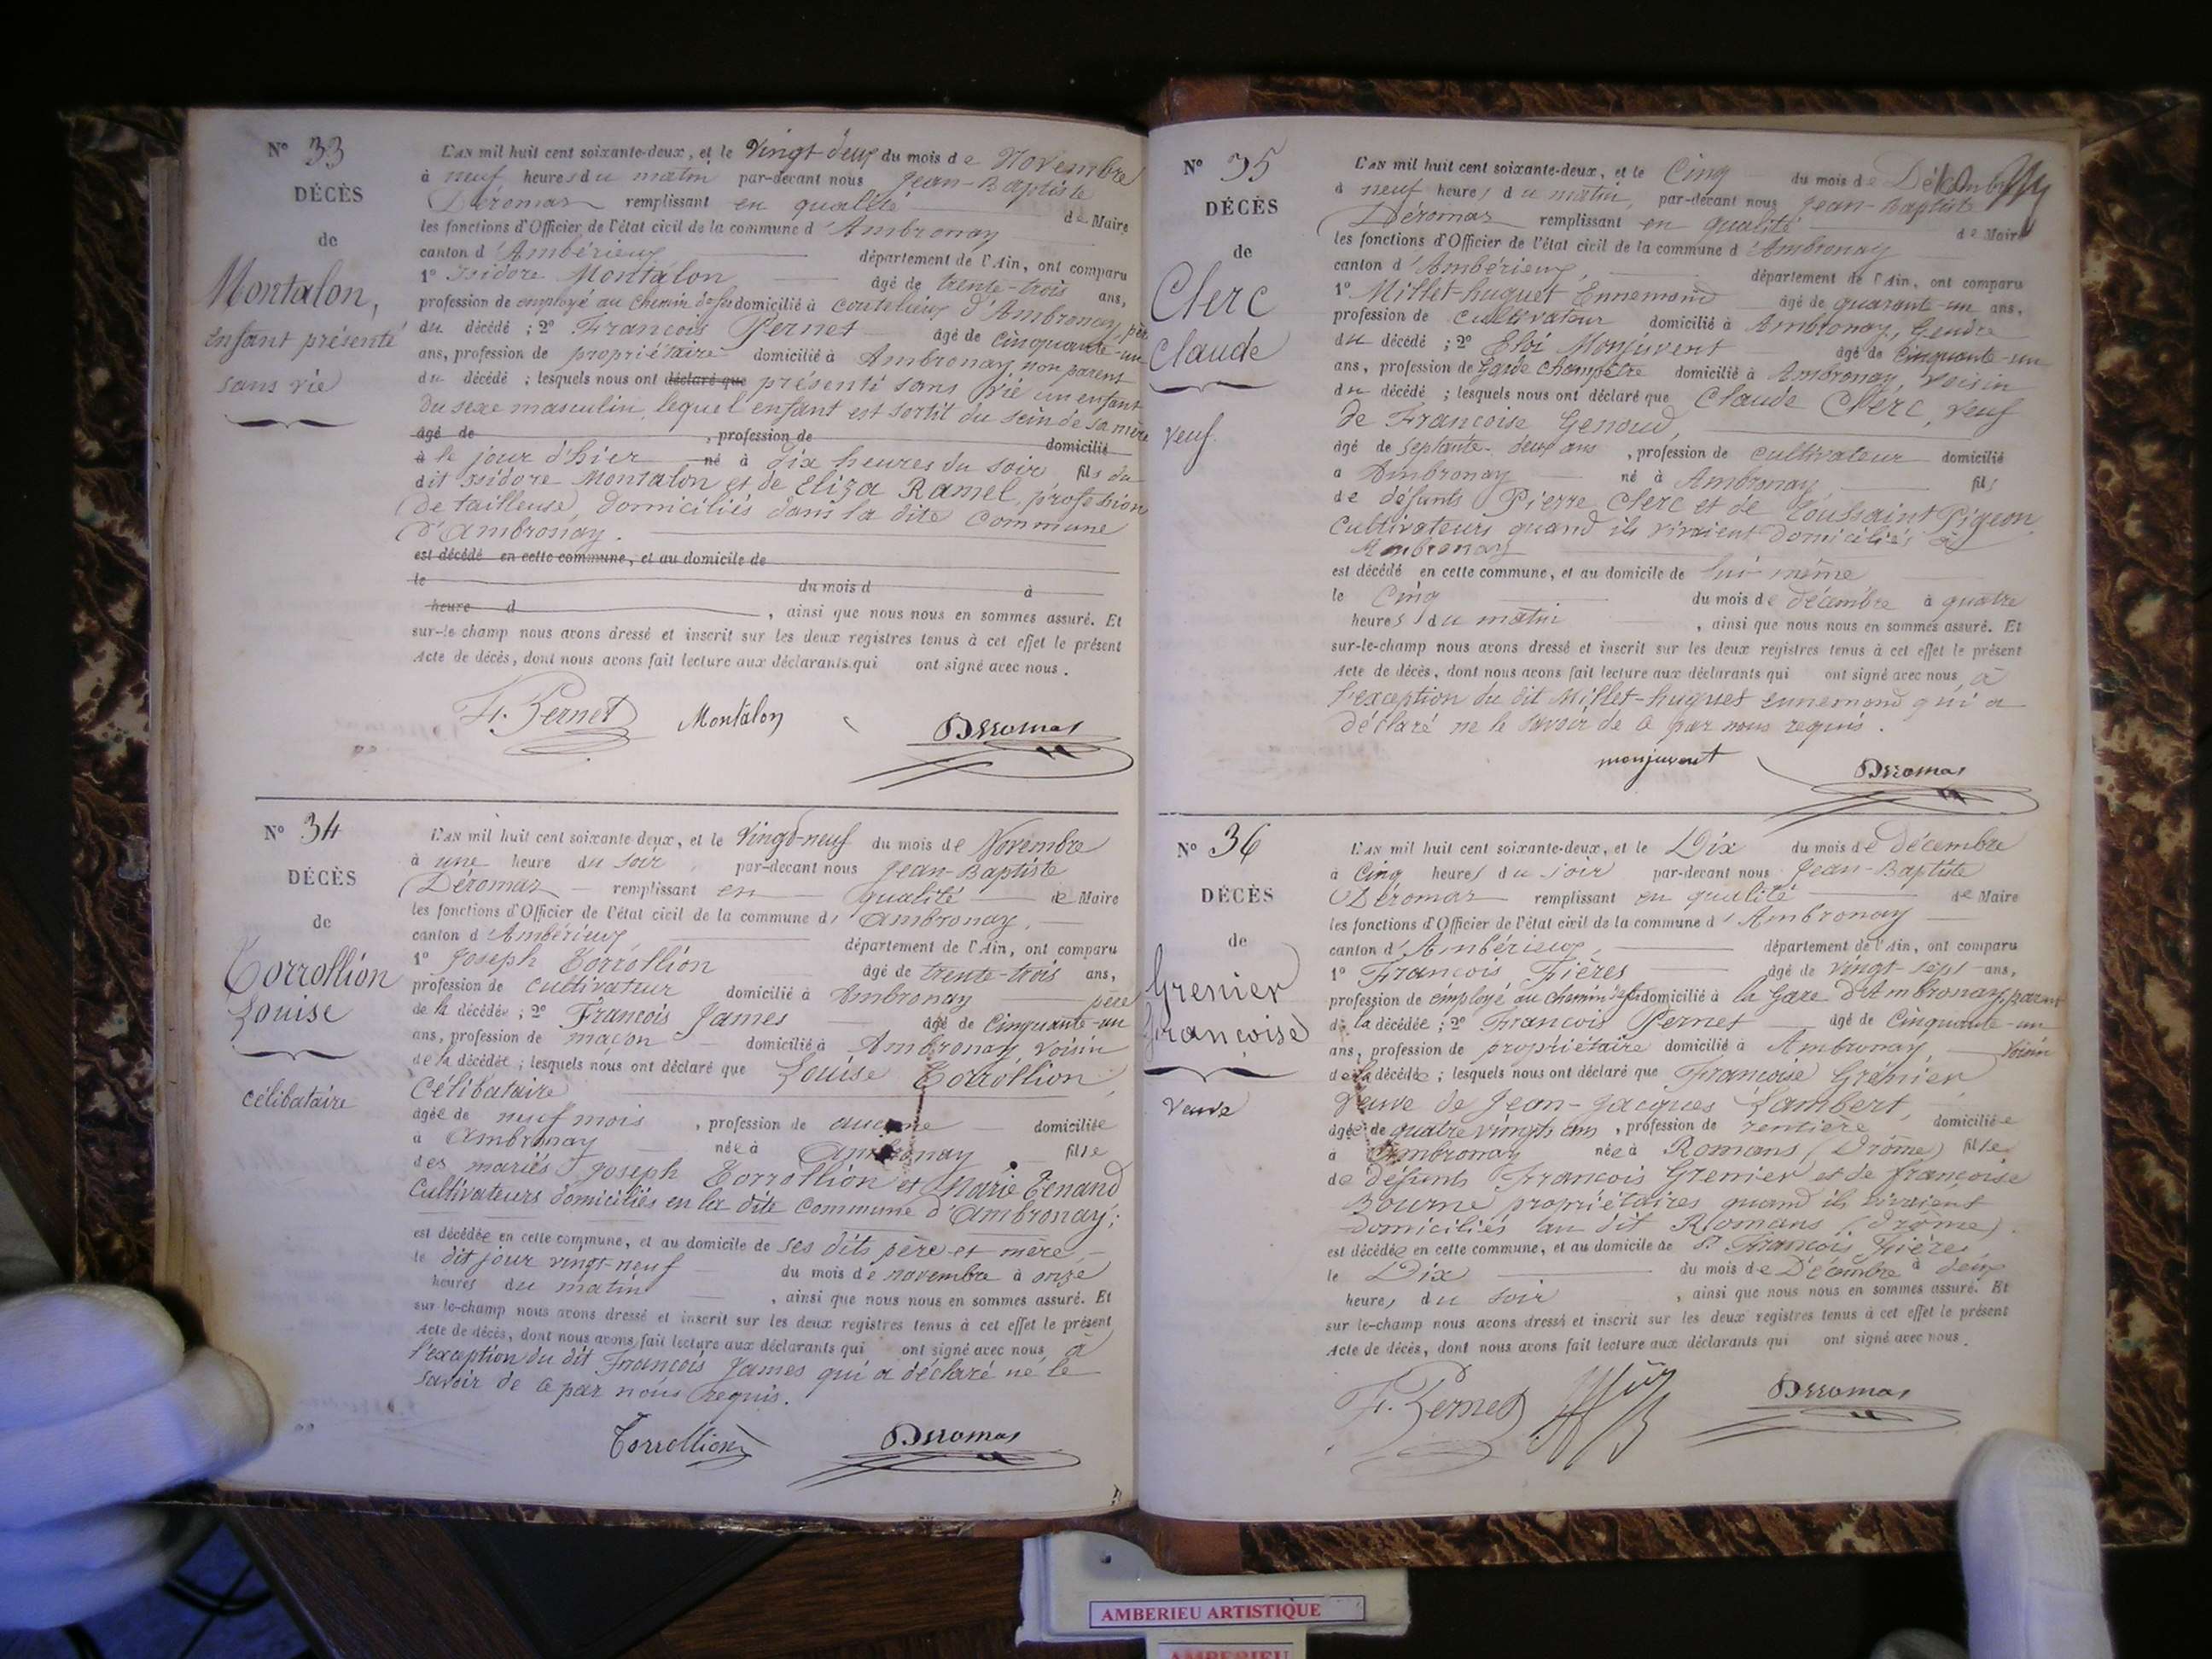 N° 33
DÉCÈS
de
Montalon,
enfant présenté
sans vie
L'AN mil huit cent soixante-deux, et le Vingt deux du mois de Novembre
à neuf heures du matin par-devant nous Jean-Baptiste
Déromas remplissant en qualité de Maire
les fonctions d'Officier de l'état civil de la commune d'Ambronay
canton d'Ambérieux département de l'Ain, ont comparu
1° Isidore Montalon âgé de trente-trois ans,
profession de employé au chemin de fer domicilié à coutelieux d'Ambronay, père
du décédé ; 2° François Pernet âgé de cinquante-un
ans, profession de propriétaire domicilié à Ambronay, non parent
du décédé ; lesquels nous ont déclaré que présenté sans vie un enfant
du sexe masculin, lequel enfant est sortit du sein de sa mère
âgé de , profession de domicilié
à le jour d'hier né à dix heures du soir fils du
dit Isidore Montalon et de Eliza Ramel, profession
de tailleuse, domiciliés dans la dite Commune
d'Ambronay.
est décédé en cette commune, et au domicile de
le du mois d à
heure d , ainsi que nous nous en sommes assuré. Et
sur-le champ nous avons dressé et inscrit sur les deux registres tenus à cet effet le présent
Acte de décès, dont nous avons fait lecture aux déclarants qui ont signé avec nous.
F. Pernet Montalon Déromas
N° 34
DÉCÈS
de
Torrollion
Louise
célibataire
L'AN mil huit cent soixante-deux, et le Vingt-neuf du mois de Novembre
à une heure du soir par-devant nous Jean-Baptiste
Déromas remplissant en qualité de Maire
les fonctions d'Officier de l'état civil de la commune d'Ambronay,
canton d'Ambérieux département de l'Ain, ont comparu
1° Joseph Torrollion âgé de trente-trois ans,
profession de cultivateur domicilié à Ambronay père
de la décédée ; 2° François James âgé de Cinquante-un
ans, profession de maçon domicilié à Ambronay, voisin
de la décédée ; lesquels nous ont déclaré que Louise Torrollion,
Célibataire
âgée de neuf mois , profession de aucune domiciliée
à Ambronay née à Ambronay fille
des mariés Joseph Torrollion et Marie Tenand
Cultivateurs domiciliés en la dite Commune d'Ambronay ;
est décédée en cette commune, et au domicile de ses dits père et mère
le dit jour vingt-neuf du mois de novembre à onze
heures du matin , ainsi que nous nous en sommes assuré. Et
sur-le-champ nous avons dressé et inscrit sur les deux registres tenus à cet effet le présent
Acte de décès, dont nous avons fait lecture aux déclarants qui ont signé avec nous à
l'exception du dit François James qui a déclaré ne le
savoir de ce par nous requis.
Torrollion Déromas
N° 35
DÉCÈS
de
Clerc
Claude
Veuf
L'AN mil huit cent soixante-deux, et le Cinq du mois de Décembre
à neuf heures du matin, par-devant nous Jean-Baptiste
Déromas remplissant en qualité de Maire
les fonctions d'Officier de l'état civil de la commune d'Ambronay
canton d'Ambérieux, département de l'Ain, ont comparu
1° Millet-huguet Ennemond âgé de quarante-un ans,
profession de cultivateur domicilié à Ambronay, Gendre
du décédé ; 2° Eloi Monjuvent âgé de Cinquante-un
ans, profession de Garde champêtre domicilié à Ambronay, voisin
du décédé ; lesquels nous ont déclaré que Claude Clerc, veuf
de Françoise Genoud,
âgé de septante-deux ans , profession de cultivateur domicilié
à Ambronay né à Ambronay fils
de défunts Pierre Clerc et de Toussaint Pigeon
cultivateurs quand ils vivaient domiciliés à
Ambronay
est décédé en cette commune, et au domicile de lui même
le Cinq du mois de décembre à quatre
heures du matin , ainsi que nous nous en sommes assuré. Et
sur-le-champ nous avons dressé et inscrit sur les deux registres tenus à cet effet le présent
Acte de décès, dont nous avons fait lecture aux déclarants qui ont signé avec nous à
l'exception du dit Millet-huguet ennemond qui a
déclaré ne le savoir de ce par nous requis.
monjuvent Déromas
N° 36
DÉCÈS
de
Grenier
Françoise
Veuve
L'AN mil huit cent soixante-deux, et le Dix du mois de décembre
à Cinq heures du soir par-devant nous Jean-Baptiste
Déromas remplissant en qualité de Maire
les fonctions d'Officier de l'état civil de la commune d'Ambronay
canton d'Ambérieux, département de l'Ain, ont comparu
1° François Fières âgé de vingt-sept ans,
profession de employé au chemin de fer domicilié à la gare d'Ambronay, parent
de la décédée ; 2° François Pernet âgé de Cinquante-un
ans, profession de propriétaire domicilié à Ambronay, voisin
de la décédée ; lesquels nous ont déclaré que Françoise Grenier
Veuve de Jean-Jacques Lambert,
âgée de quatre vingts ans , profession de rentière domiciliée
à Ambronay née à Romans (Drôme) fille
de défunts François Grenier et de françoise
Bourne propriétaires quand ils vivaient
domiciliés au dit Romans (drôme).
est décédée en cette commune, et au domicile de Sr François Fières
le Dix du mois de Décembre à deux
heures du soir , ainsi que nous nous en sommes assuré. Et
sur le-champ nous avons dressé et inscrit sur les deux registres tenus à cet effet le présent
Acte de décès, dont nous avons fait lecture aux déclarants qui ont signé avec nous.
F. Pernet Déromas
AMBERIEU ARTISTIQUE
AMBERIEU